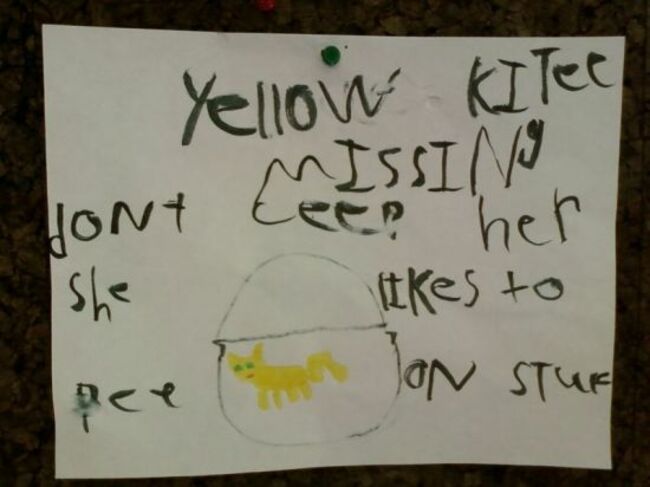 Yellow KITee
MISSINg
dONt ceep her
She likes to
pee ON STUF